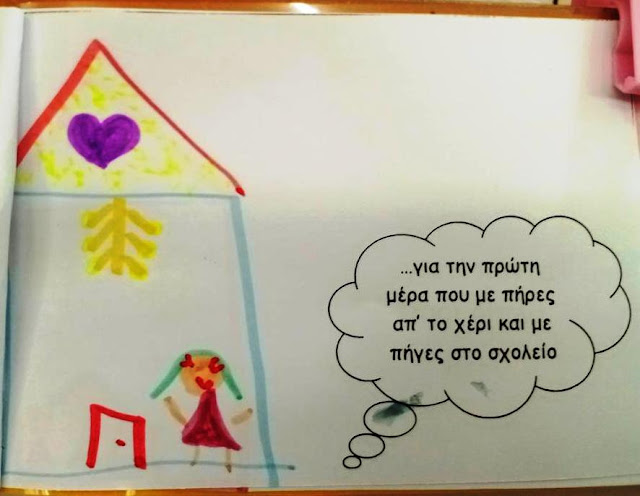 ...για την πρώτη
μέρα που με πήρες
απ' το χέρι και με
πήγες στο σχολείο